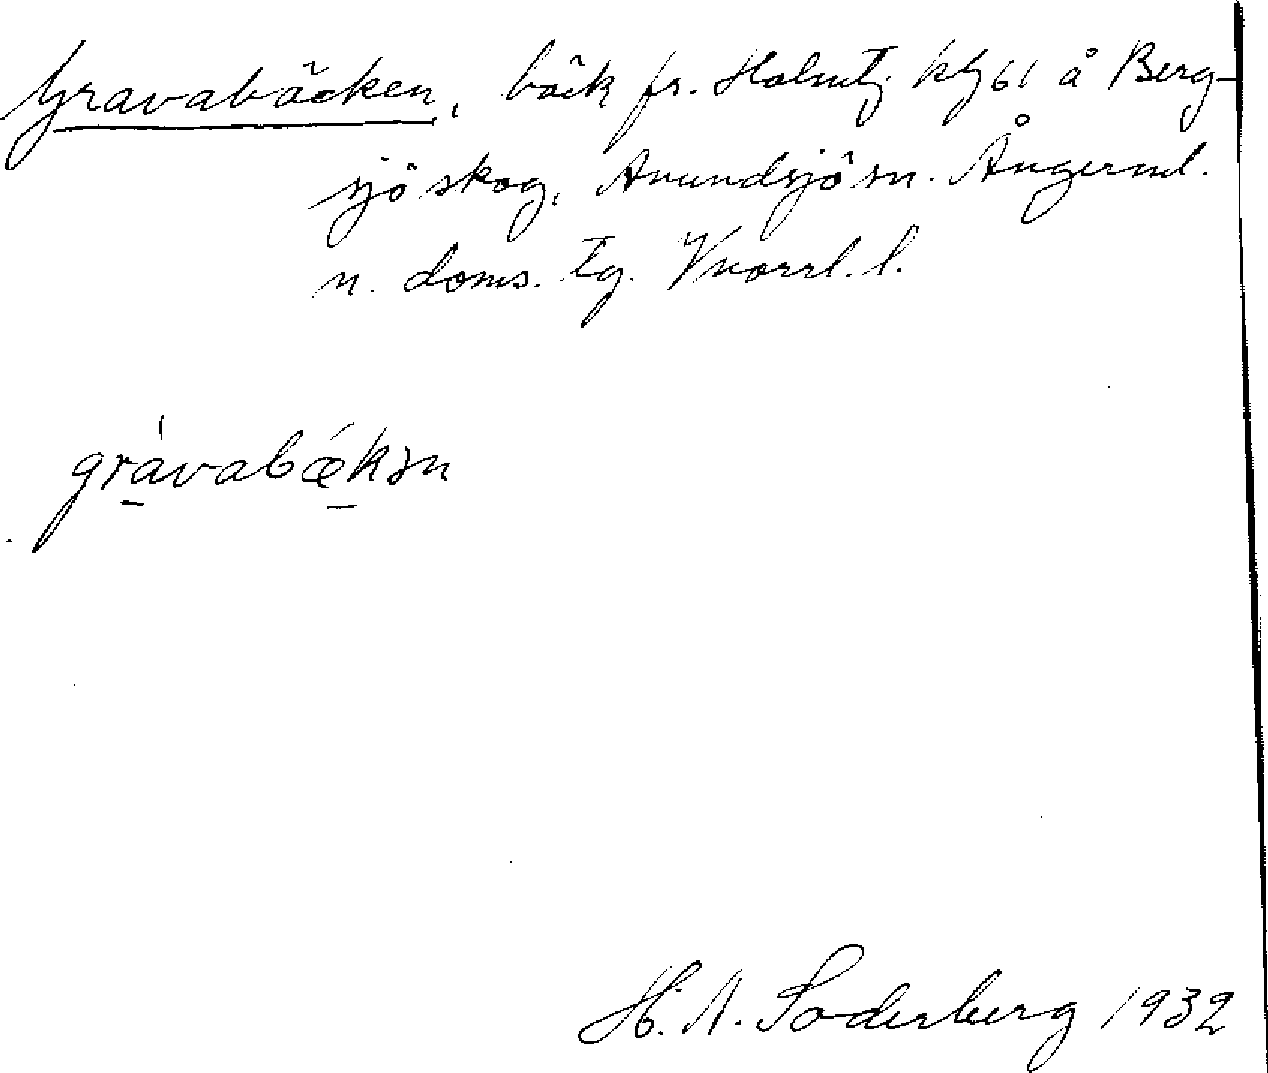 Gravabäcken, bäck fr. Holmtj. 61 å Berg-
sjö skog, Anundsjö sn. Ångerml.
n. doms. tg. Vnorrl. l.
grávabǽkən
H. A. Söderberg 1932